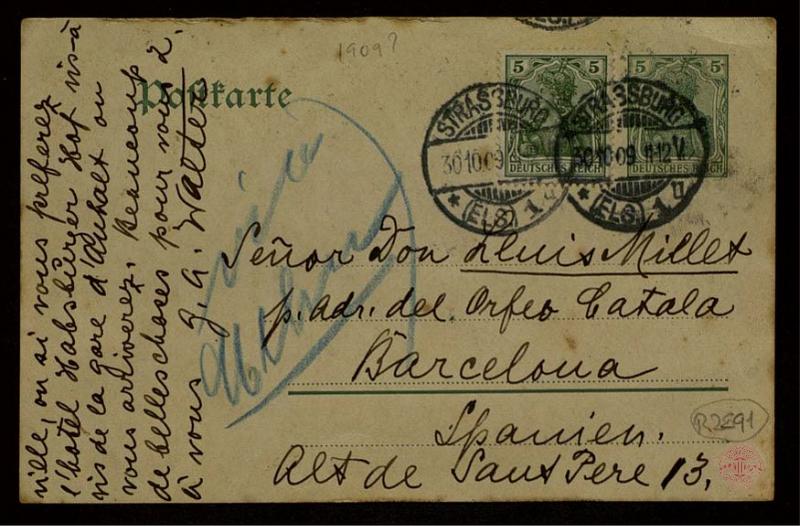 1909?
Postkarte
5 5
DEUTSCHES REICH
5 5
DEUTSCHES REICH
STRASSBURG
30.10.09
* (ELS) 1 u
STRASSBURG
30.10.09. 11-12 V.
* (ELS.) 1 u
Señor Don Lluis Millet
p. adr. del Orfeo Catala
Barcelona
Spanien.
Alt de Sant Pere 13.
R2E91
ville, ou si vous préferez
l'hotel Habsburger Hof vis-à
vis de la gare d'Anhalt ou
vous arriverez. Beaucoup
de belles choses pour vous 2.
à vous G. A. Walter